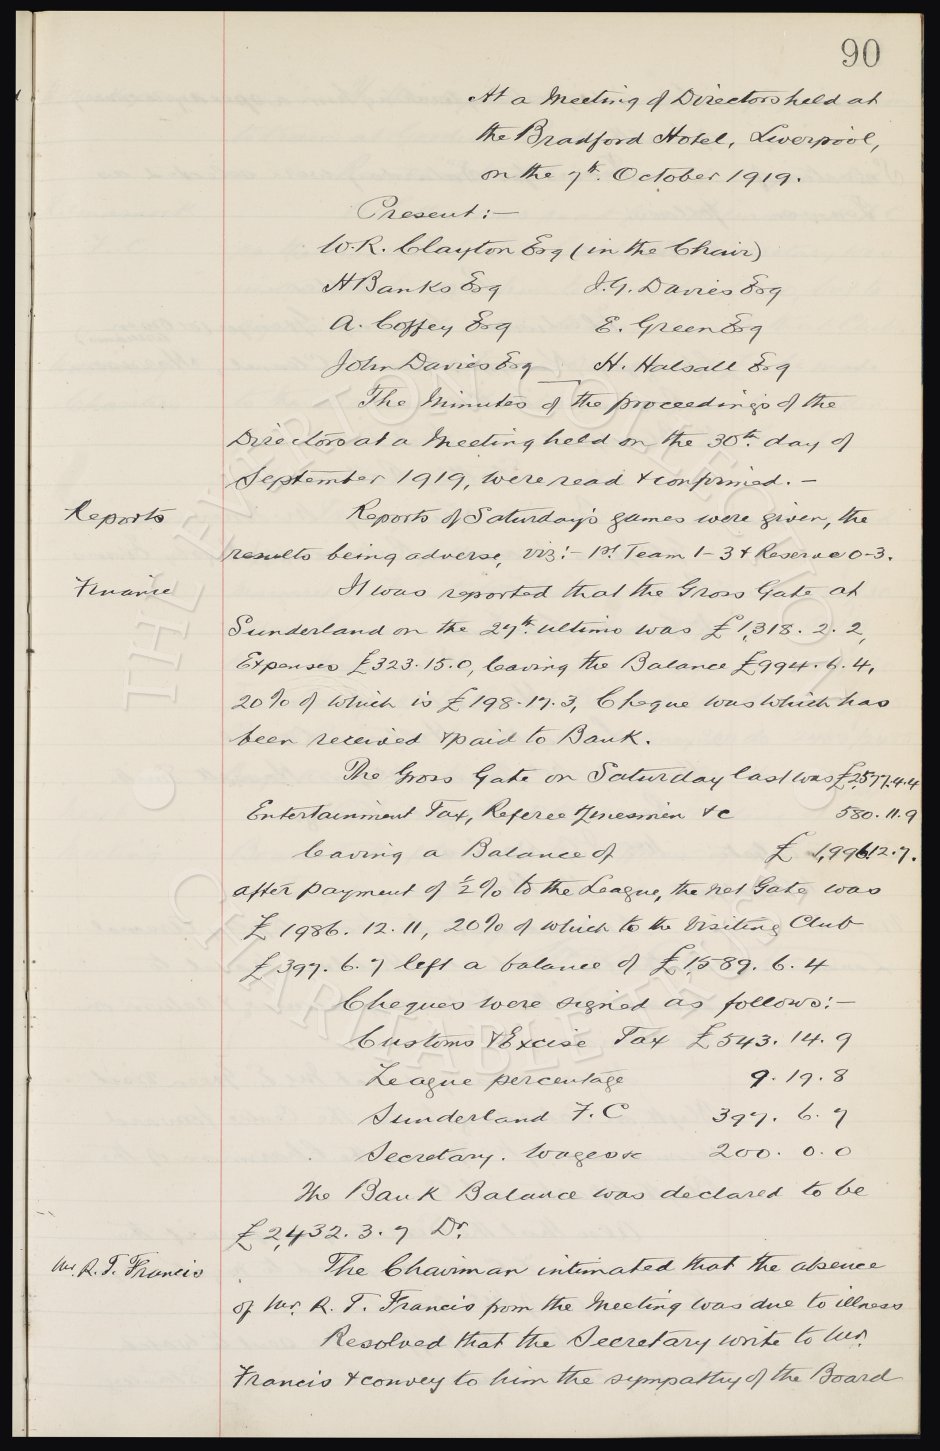 90
At a Meeting of Directors held at
the Bradford Hotel, Liverpool,
on the 7th. October 1919.
Present:—
W. R. Clayton Esq (in the Chair)
H Banks Esq J. G. Davies Esq
A. Coffey Esq E. Green Esq
John Davies Esq H. Halsall Esq
The Minutes of the proceedings of the
Directors at a Meeting held on the 30th. day of
September 1919, were read & confirmed. —
Reports Reports of Saturday's games were given, the
results being adverse, viz:— 1st Team 1-3 & Reserve 0-3.
Finance It was reported that the Gross Gate at
Sunderland on the 27th. ultimo was £1,318. 2. 2,
Expenses £323. 15. 0, leaving the Balance £994. 6. 4,
20% of which is £198. 17. 3, Cheque was which has
been received & paid to Bank.
The Gross Gate on Saturday last was £2,577. 4. 4
Entertainment Tax, Referee Linesmen &c 580. 11. 9
leaving a Balance of £ 1,996. 12. 7.
after payment of ½% to the League, the net Gate was
£ 1986. 12. 11, 20% of which to the Visiting Club
£ 397. 6. 7 left a balance of £ 1,589. 6. 4
Cheques were signed as follows:—
Customs & Excise Tax £543. 14. 9
League percentage 9. 19. 8
Sunderland F. C 397. 6. 7
Secretary. Wages &c 200. 0. 0
The Bank Balance was declared to be
£ 2,432. 3. 7 Dr.
Mr. R. T. Francis The Chairman intimated that the absence
of Mr. R. T. Francis from the Meeting was due to illness
Resolved that the Secretary write to Mr.
Francis & convey to him the sympathy of the Board
THE EVERTON COLLECTION
CHARITABLE TRUST